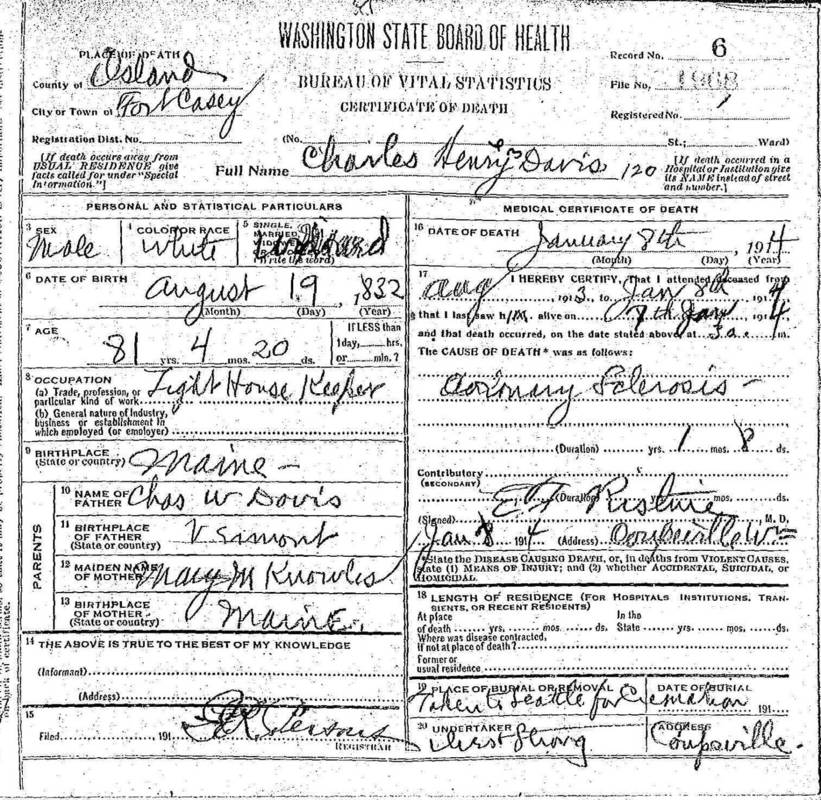 WASHINGTON STATE BOARD OF HEALTH
BUREAU OF VITAL STATISTICS
CERTIFICATE OF DEATH
PLACE OF DEATH
County of Island
City or Town of Fort Casey
Registration Dist. No.
(No. St.; Ward)
Record No. 6
File No. 1968
Registered No. 1
[If death occurs away from USUAL RESIDENCE give facts called for under "Special Information."]
Full Name Charles Henry Davis 120
[If death occurred in a Hospital or Institution give its NAME instead of street and number.]
PERSONAL AND STATISTICAL PARTICULARS
3 SEX Male
4 COLOR OR RACE White
5 SINGLE, MARRIED, WIDOWED
(Write the word)
6 DATE OF BIRTH August 19, 1832
(Month) (Day) (Year)
7 AGE 81 yrs. 4 mos. 20 ds.
If LESS than 1 day, hrs. or min.?
8 OCCUPATION
(a) Trade, profession, or particular kind of work Light House Keeper
(b) General nature of industry, business or establishment in which employed (or employer)
9 BIRTHPLACE (State or country) Maine -
PARENTS
10 NAME OF FATHER Chas W Davis
11 BIRTHPLACE OF FATHER (State or country) Vermont
12 MAIDEN NAME OF MOTHER Mary M Knowles
13 BIRTHPLACE OF MOTHER (State or country) Maine.
14 THE ABOVE IS TRUE TO THE BEST OF MY KNOWLEDGE
(Informant)
(Address)
15
Filed 191
REGISTRAR
MEDICAL CERTIFICATE OF DEATH
16 DATE OF DEATH January 8th, 1914
(Month) (Day) (Year)
17 I HEREBY CERTIFY, That I attended deceased from
Aug 1913, to Jan 8th 1914
that I last saw him alive on 7th Jan 1914
and that death occurred, on the date stated above, at 3 a. m.
The CAUSE OF DEATH * was as follows:
Coronary Sclerosis -
(Duration) yrs. 1 mos. 8 ds.
Contributory (SECONDARY)
(Duration) yrs. mos. ds.
(Signed) M. D.
Jan 8 1914 (Address) Coupeville Wn
*State the DISEASE CAUSING DEATH, or, in deaths from VIOLENT CAUSES, state (1) MEANS OF INJURY; and (2) whether ACCIDENTAL, SUICIDAL, or HOMICIDAL.
18 LENGTH OF RESIDENCE (FOR HOSPITALS INSTITUTIONS, TRANSIENTS, OR RECENT RESIDENTS)
At place of death yrs. mos. ds. In the State yrs. mos. ds.
Where was disease contracted, if not at place of death?
Former or usual residence
19 PLACE OF BURIAL OR REMOVAL DATE OF BURIAL
Taken to Seattle for Cremation 191
20 UNDERTAKER ADDRESS
Strong Coupeville.